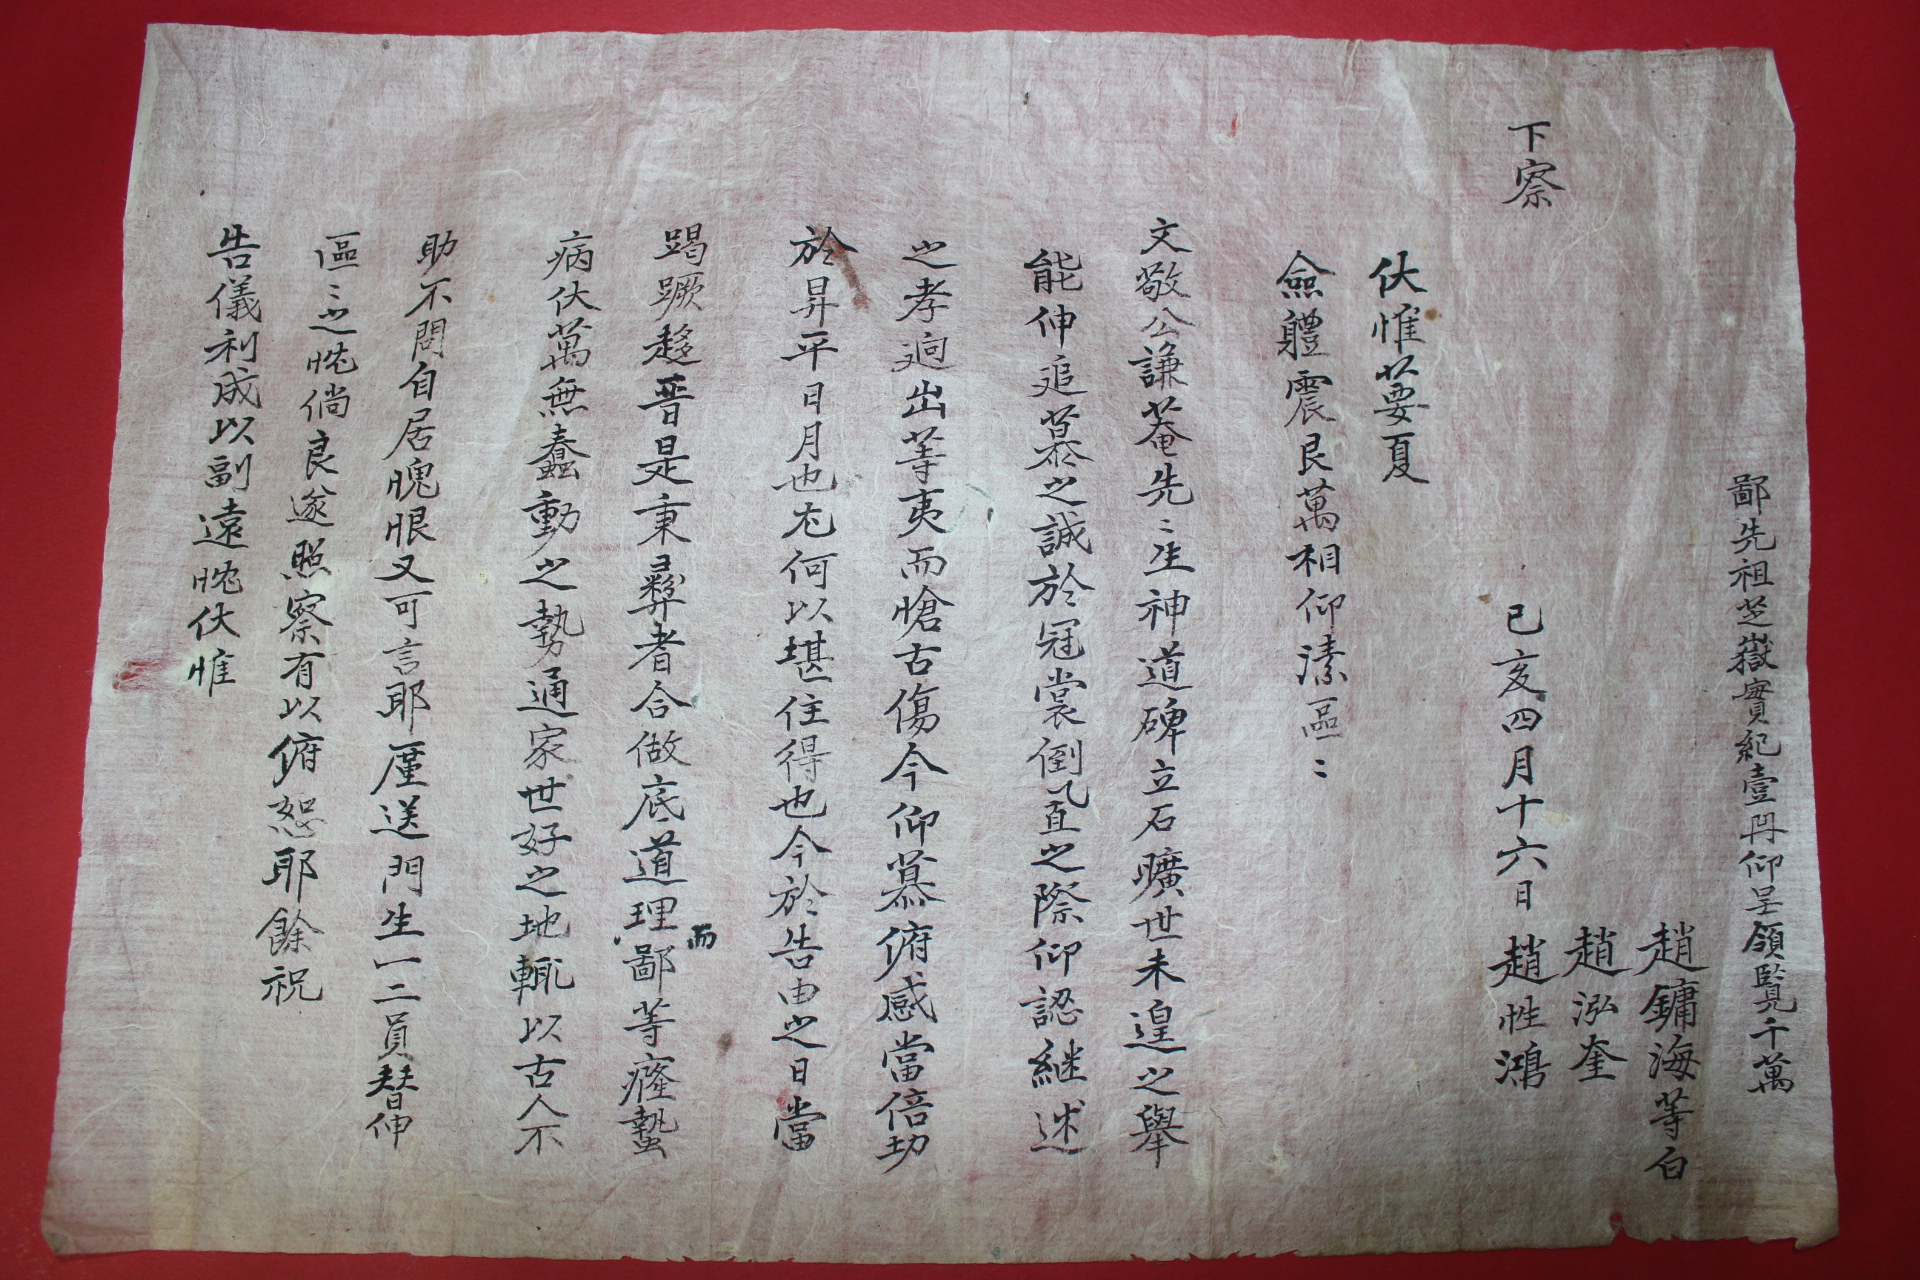 伏惟蔞夏
僉軆震艮萬相仰溸區〻
文敬公謙菴先〻生神道碑立石曠世未遑之擧
能伸追慕之誠於冠裳倒置之際仰認継述
之孝逈出等夷而愴古傷今仰慕俯感當倍切
於昇平日月也尤何以堪住得也今於告由之日當
踢蹶趍晋是秉彛者合做底道理而鄙等癃蟄
病伏萬無蠢動之勢通家世好之地輒以古人不
助不問自居愧恨又可言耶厪送門生一二員替伸
區〻之忱倘良遂照察有以俯恕耶餘祝
告儀利成以副遠忱伏惟
下察
己亥四月十六日 趙性鴻
趙泓奎
趙鏞海等白
鄙先祖芝嶽實紀壹冊仰呈領覽千萬